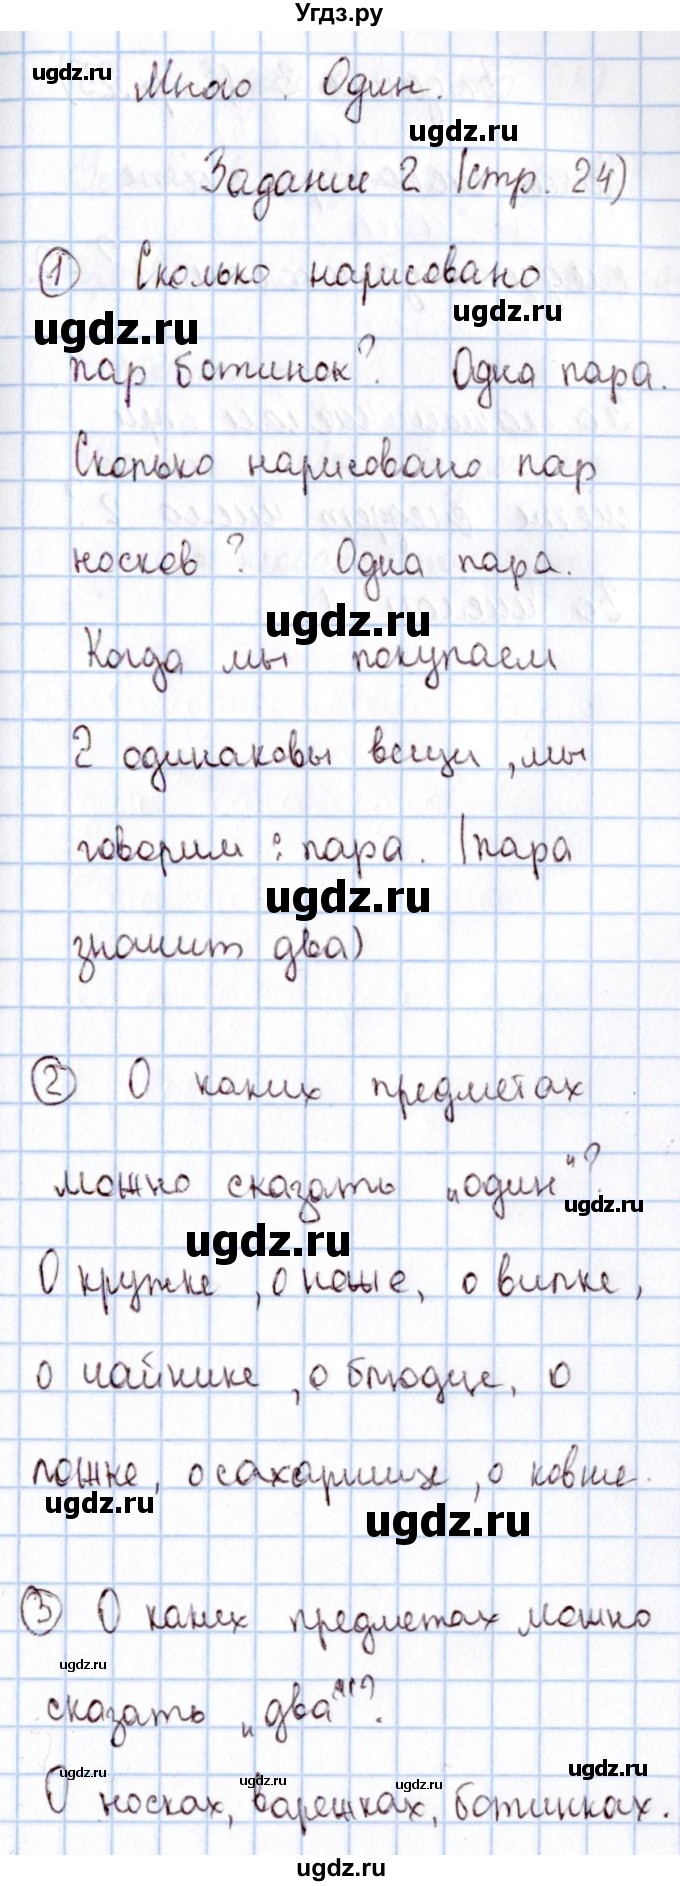 Угдз.ру
ugdz.ru
Много. Один.
ugdz.ru
Задание 2 (стр. 24)
1 Сколько нарисовано
ugdz.ru
ugdz.ru
пар ботинок? Одна пара.
Сколько нарисовано пар
носков? Одна пара.
ugdz.ru
Когда мы покупаем
2 одинаковы вещи, мы
говорим: пара. (пара
ugdz.ru
значит два)
2 О каких предметах
можно сказать „один"?
ugdz.ru
ugdz.ru
О кружке, о чаше, о вилке,
о чайнике, о блюдце, о
ложке, о сахарнице, о ковше.
ugdz.ru
ugdz.ru
3 О каких предметах можно
ugdz.ru
сказать „два"?
ugdz.ru
ugdz.ru
ugdz.ru
ugdz.ru
О носках, варежках, ботинках.
ugdz.ru